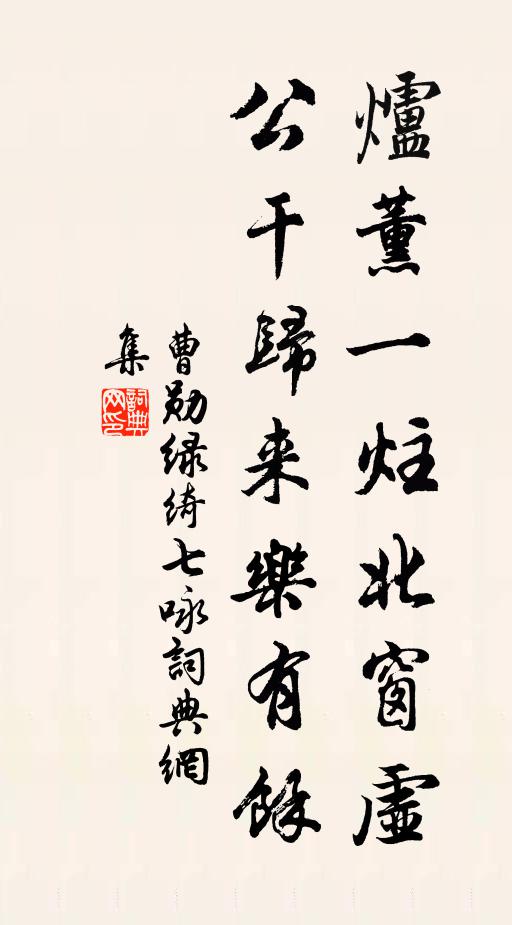 爐薰一炷北窗虛
公干歸来樂有餘
曹勛緑綺七咏詞典網
集
詞典網印